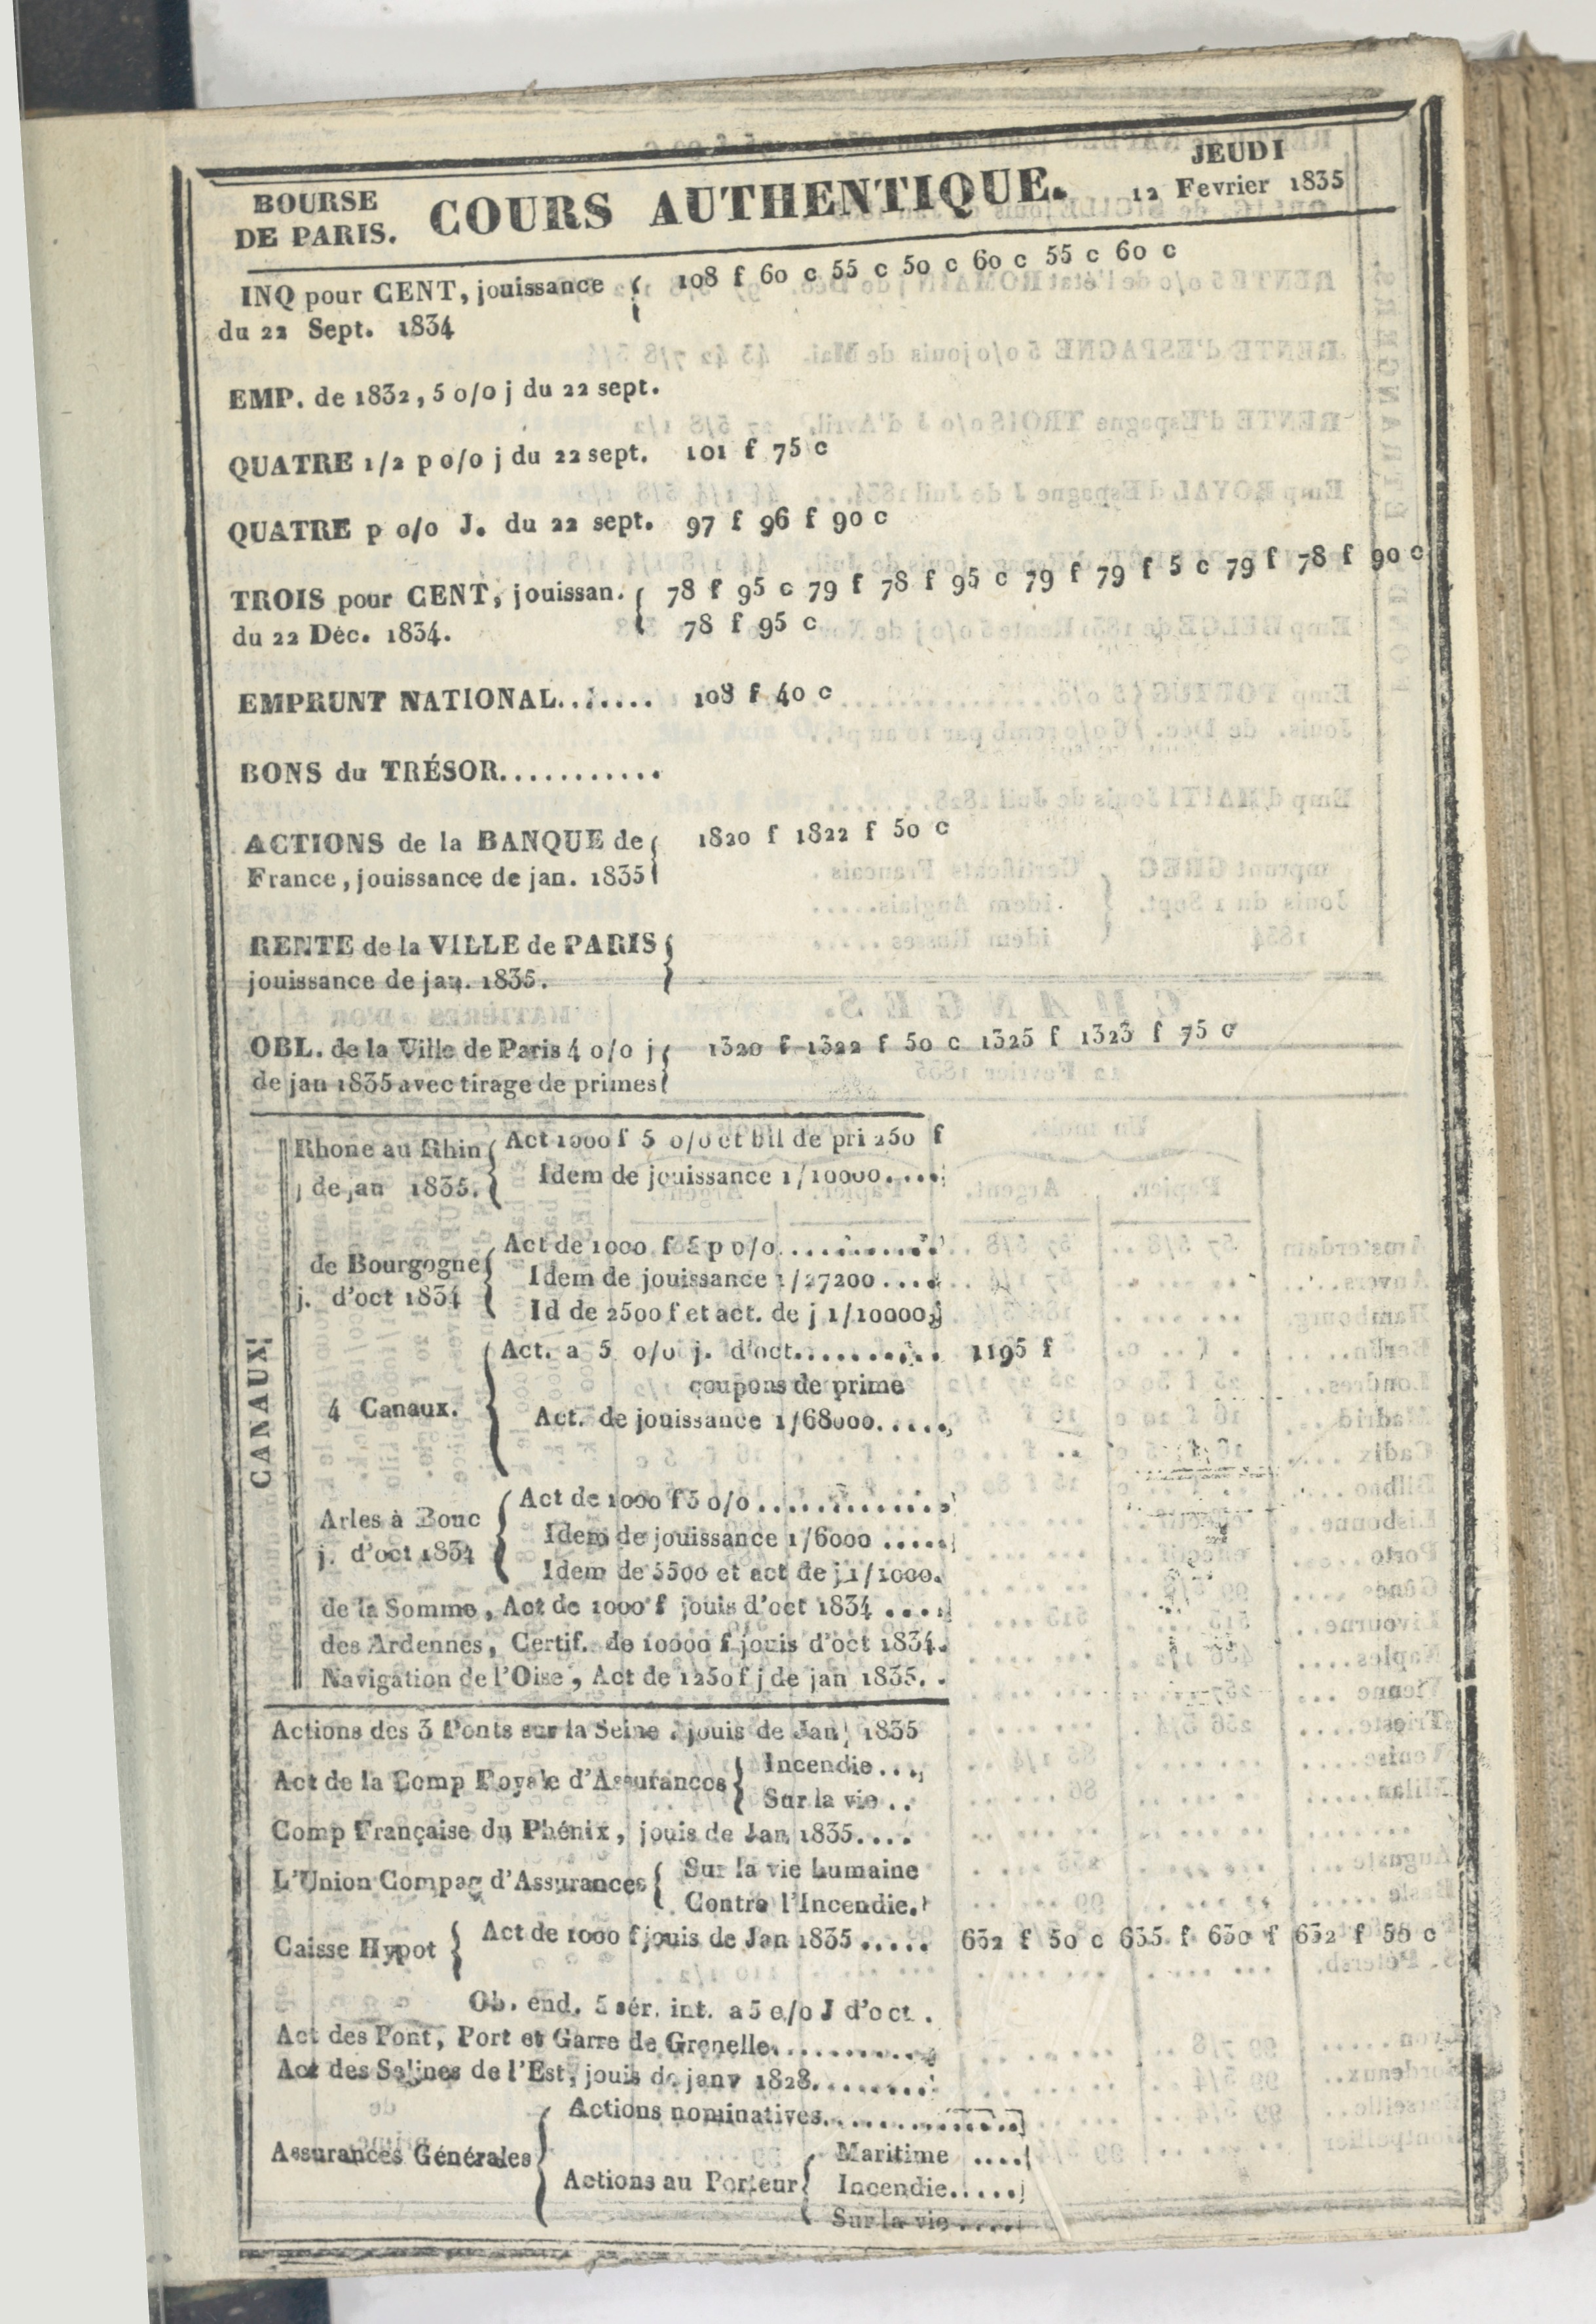 BOURSE
DE PARIS.
COURS AUTHENTIQUE.
JEUDI
12 Fevrier 1835
INQ pour CENT, jouissance { 108 f 60 c 55 c 50 c 60 c 55 c 60 c
du 22 Sept. 1834
EMP. de 1832, 5 o/o j du 22 sept.
QUATRE 1/2 p o/o j du 22 sept. 101 f 75 c
QUATRE p o/o J. du 22 sept. 97 f 96 f 90 c
TROIS pour CENT, jouissan. { 78 f 95 c 79 f 78 f 95 c 79 f 79 f 5 c 79 f 78 f 90 c
du 22 Déc. 1834. 78 f 95 c
EMPRUNT NATIONAL....... 108 f 40 c
BONS du TRÉSOR...........
ACTIONS de la BANQUE de { 1820 f 1822 f 50 c
France, jouissance de jan. 1835
RENTE de la VILLE de PARIS {
jouissance de jan. 1835.
OBL. de la Ville de Paris 4 o/o j { 1320 f 1322 f 50 c 1325 f 1323 f 75 c
de jan 1835 avec tirage de primes
CANAUX
Rhone au Rhin { Act 1000 f 5 o/o et bil de pri 250 f
j de jan 1835. Idem de jouissance 1/10000....
de Bourgogne { Act de 1000 f 5 p o/o...........
j. d'oct 1834 Idem de jouissance 1/27200....
Id de 2500 f et act. de j 1/10000
4 Canaux. { Act. a 5 o/o j. d'oct.......... 1195 f
coupons de prime
Act. de jouissance 1/68000.....
Arles à Bouc { Act de 1000 f 5 o/o.............
j. d'oct 1834 Idem de jouissance 1/6000.....
Idem de 5500 et act de j 1/1000.
de la Somme, Act de 1000 f jouis d'oct 1834....
des Ardennes, Certif. de 10000 f jouis d'oct 1834.
Navigation de l'Oise, Act de 1250 f j de jan 1835..
Actions des 3 Ponts sur la Seine. jouis de Jan 1835
Act de la Comp Royale d'Assurances { Incendie...
Sur la vie..
Comp Française du Phénix, jouis de Jan 1835....
L'Union Compag d'Assurances { Sur la vie humaine
Contre l'Incendie.
Caisse Hypot { Act de 1000 f jouis de Jan 1835..... 632 f 50 c 635 f 630 f 632 f 50 c
Ob. end. 5 sér. int. a 5 o/o J d'oct.
Act des Pont, Port et Garre de Grenelle..........
Act des Salines de l'Est, jouis de janv 1828........
Assurances Générales { Actions nominatives..............
Actions au Porteur { Maritime ....
Incendie.....
Sur la vie....